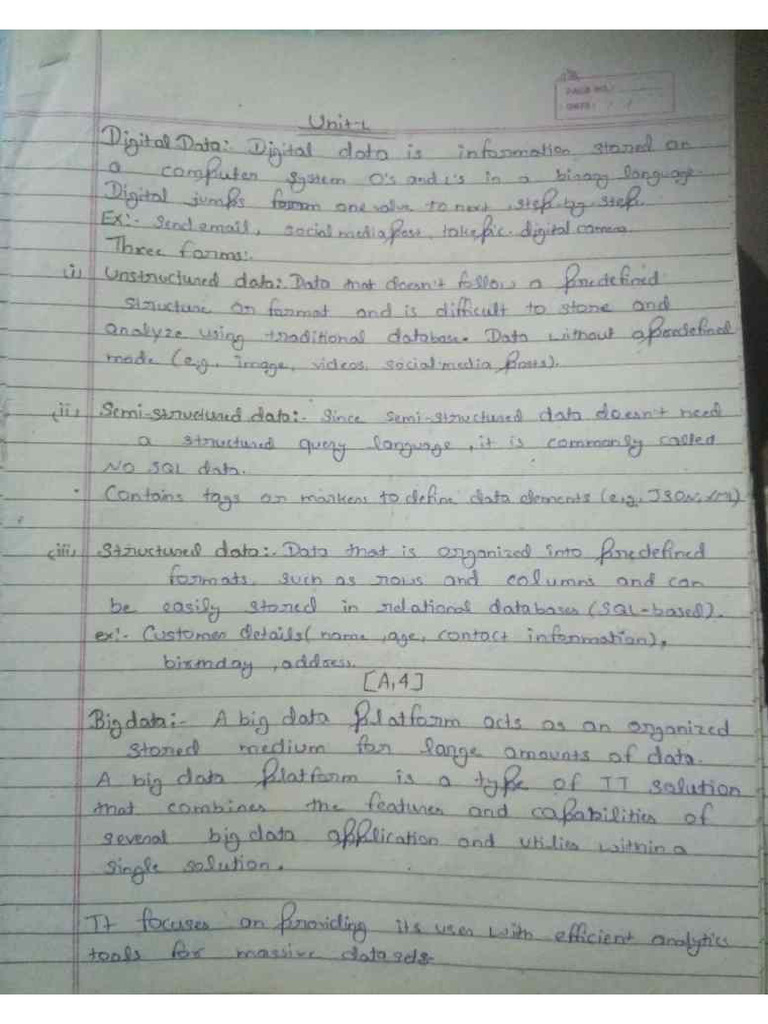 PAGE NO.:
DATE: / /
Unit-1
Digital Data:- Digital data is information stored on
a computer system 0's and 1's in a binary language.
Digital jumps from one value to next step by step.
Ex:- Send email, social media post, take pic. digital camera
Three forms:-
(i) Unstructured data:- Data that doesn't follow a predefined
structure or format and is difficult to store and
analyze using traditional database. Data without a predefined
mode (e.g., Image, videos, social media posts).
(ii) Semi-structured data:- Since semi-structured data doesn't need
a structured query language, it is commonly called
NO SQL data.
Contains tags or markers to define data elements (e.g. JSON, XML)
(iii) Structured data:- Data that is organized into predefined
formats, such as rows and columns and can
be easily stored in relational databases (SQL-based).
ex:- Customer details( name, age, contact information),
birthday, address.
[A,4]
Big data:- A big data platform acts as an organized
stored medium for large amounts of data.
A big data platform is a type of IT solution
that combines the features and capabilities of
several big data application and utilies within a
single solution.
It focuses on providing its user with efficient analytics
tools for massive datasets.